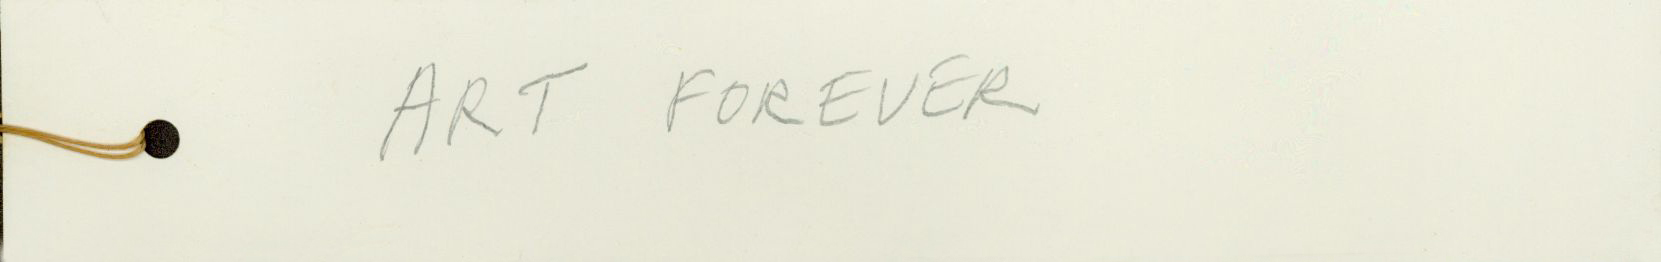 ART FOREVER